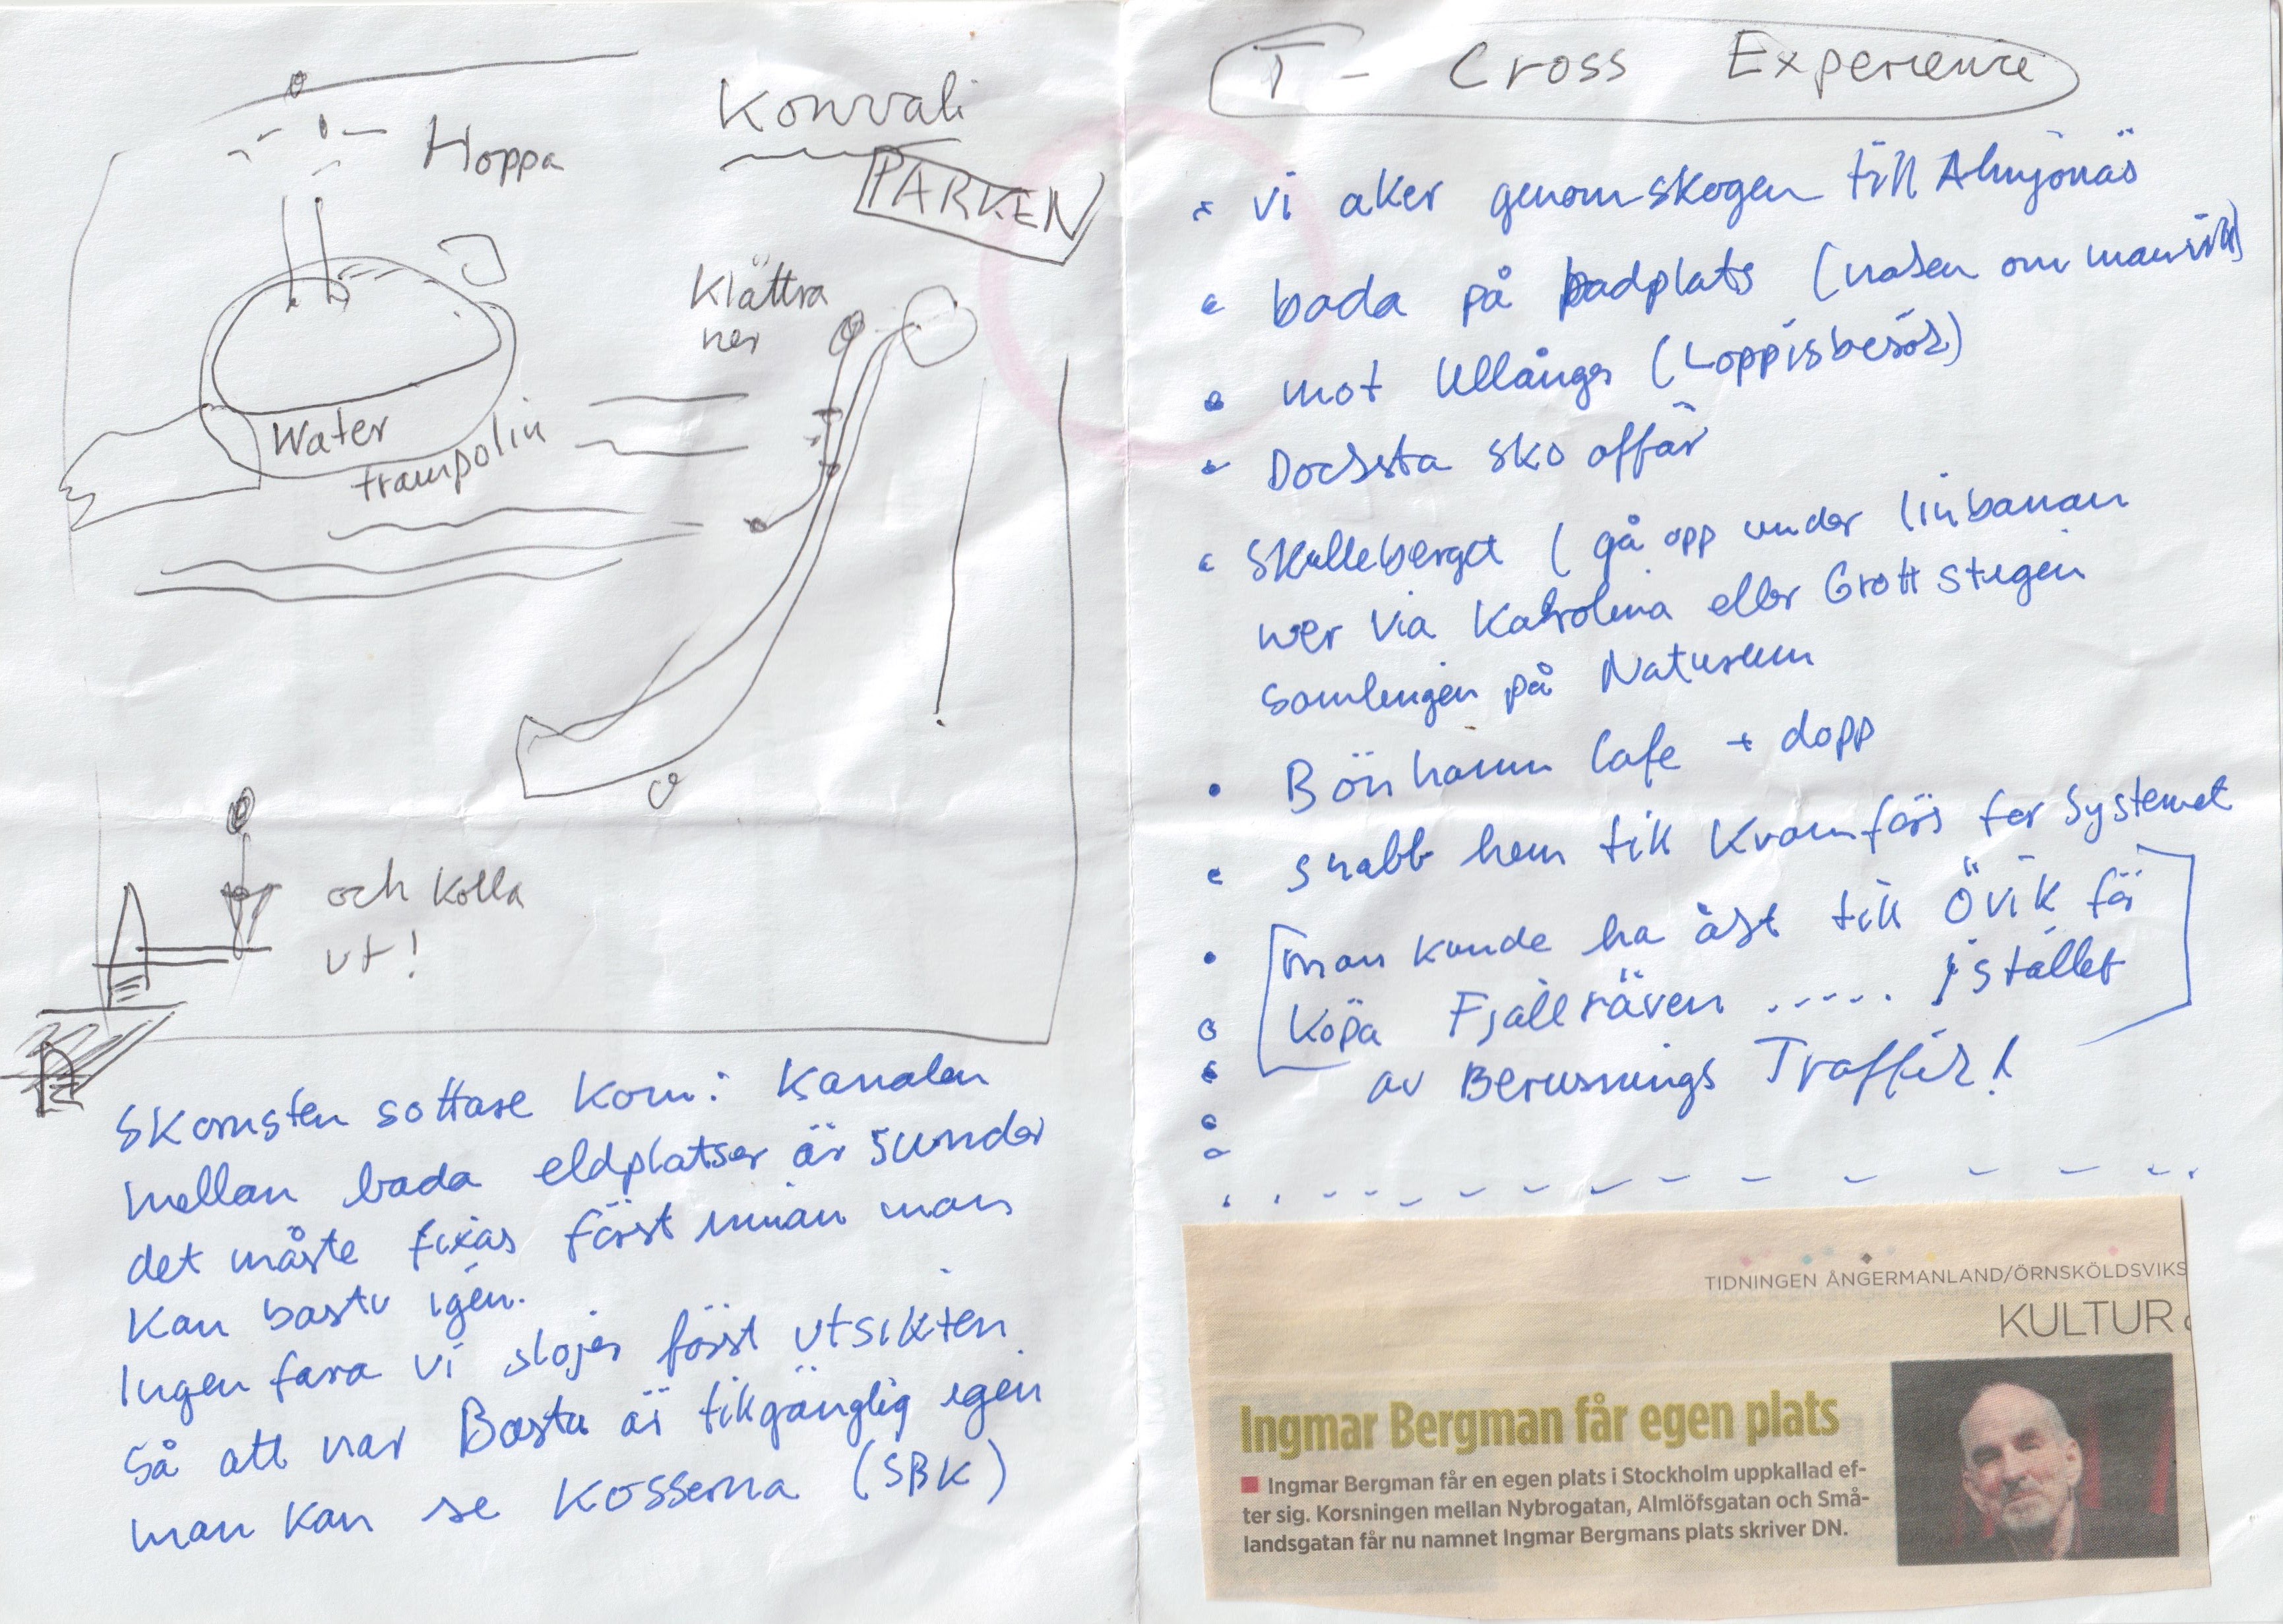 Konvali
PARKEN
Hoppa
Klättra
ner
Water
trampolin
och Kolla
ut!
Skorsten sottare Kom: Kanalen
mellan bada eldplatser är sunder
det måste fixas först innan man
Kan bastu igen.
Ingen fara vi slojer först utsikten
Så att nar Bastu är tillgänglig igen
man kan se Kossorna (SBK)
T - Cross Experience
vi aker genom skogen till Almsjönäs
bada på badplats (naken om man vill)
mot Ullånger (Loppisbesök)
Docksta sko affär
Skulleberget ( gå opp under linbanan
ner via Katrolina eller Grottstigen
samlingen på Naturum
Bönhamn Cafe + dopp
snabb hem till Kramfors for Systemet
[man kunde ha åkt till Övik för
Köpa Fjällräven ..... istället]
av Berusnings Traffik!
TIDNINGEN ÅNGERMANLAND/ÖRNSKÖLDSVIKS
KULTUR
Ingmar Bergman får egen plats
Ingmar Bergman får en egen plats i Stockholm uppkallad ef-
ter sig. Korsningen mellan Nybrogatan, Almlöfsgatan och Små-
landsgatan får nu namnet Ingmar Bergmans plats skriver DN.